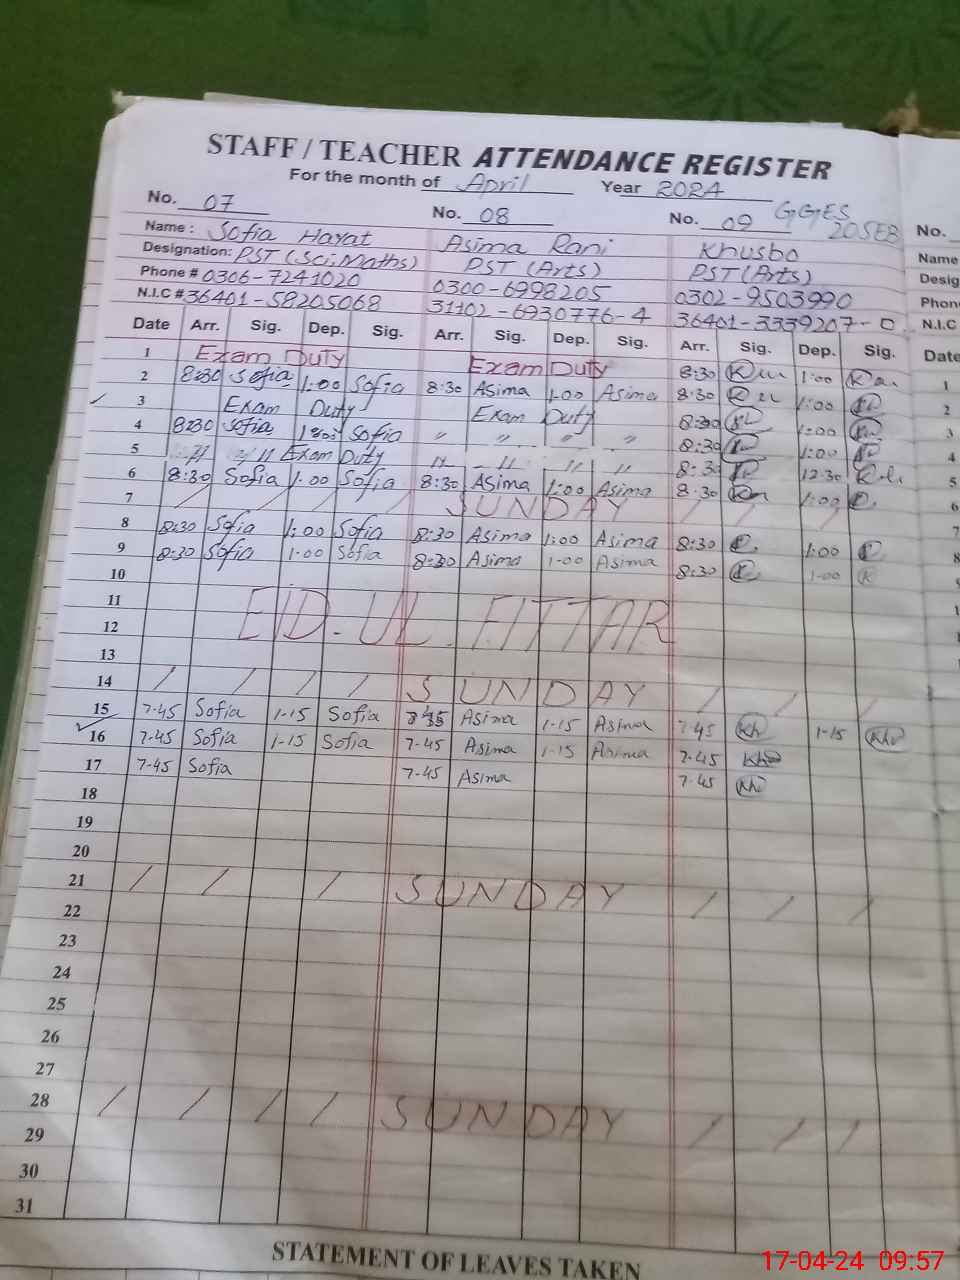 STAFF / TEACHER ATTENDANCE REGISTER
For the month of April Year 2024
No. 07 No. 08 No. 09 GGES 20SEB No.
Name : Sofia Hayat Asima Rani Khusbo Name
Designation: PST (Sci.Maths) PST (Arts) PST (Arts) Desig
Phone # 0306-7241020 0300-6998205 0302-9503990 Phone
N.I.C # 36401-58205068 31102-6930776-4 36401-3339207-0 N.I.C
Date Arr. Sig. Dep. Sig. Arr. Sig. Dep. Sig. Arr. Sig. Dep. Sig. Date
1 Exam Duty Exam Duty 8:30 1:00 1
2 8:30 Sofia 1:00 Sofia 8:30 Asima 1.00 Asima 8:30 1:00 2
3 Exam Duty Exam Duty 8:30 1:00 3
4 8:30 Sofia Sofia " " " " 8:30 1:00 4
5 " " Exam Duty " " " " 8:30 12:30 5
6 8:30 Sofia 1:00 Sofia 8:30 Asima 1:00 Asima 8:30 1:00 6
7 / / / / SUNDAY / / / / 7
8 8:30 Sofia 1:00 Sofia 8:30 Asima 1:00 Asima 8:30 1:00 8
9 8:30 Sofia 1:00 Sofia 8:30 Asima 1-00 Asima 8:30 1-00 9
10
11 EID-UL FITTAR
12
13
14 / / / / SUNDAY / / / /
15 7-45 Sofia 1-15 Sofia Asima 1-15 Asima 7-45 Kh 1-15 Kh
16 7-45 Sofia 1-15 Sofia 7-45 Asima 1-15 Asima 7-45
17 7-45 Sofia 7-45 Asima 7-45 Kh
18
19
20
21 / / / SUNDAY / / /
22
23
24
25
26
27
28 / / / / SUNDAY / / /
29
30
31
STATEMENT OF LEAVES TAKEN
17-04-24 09:57